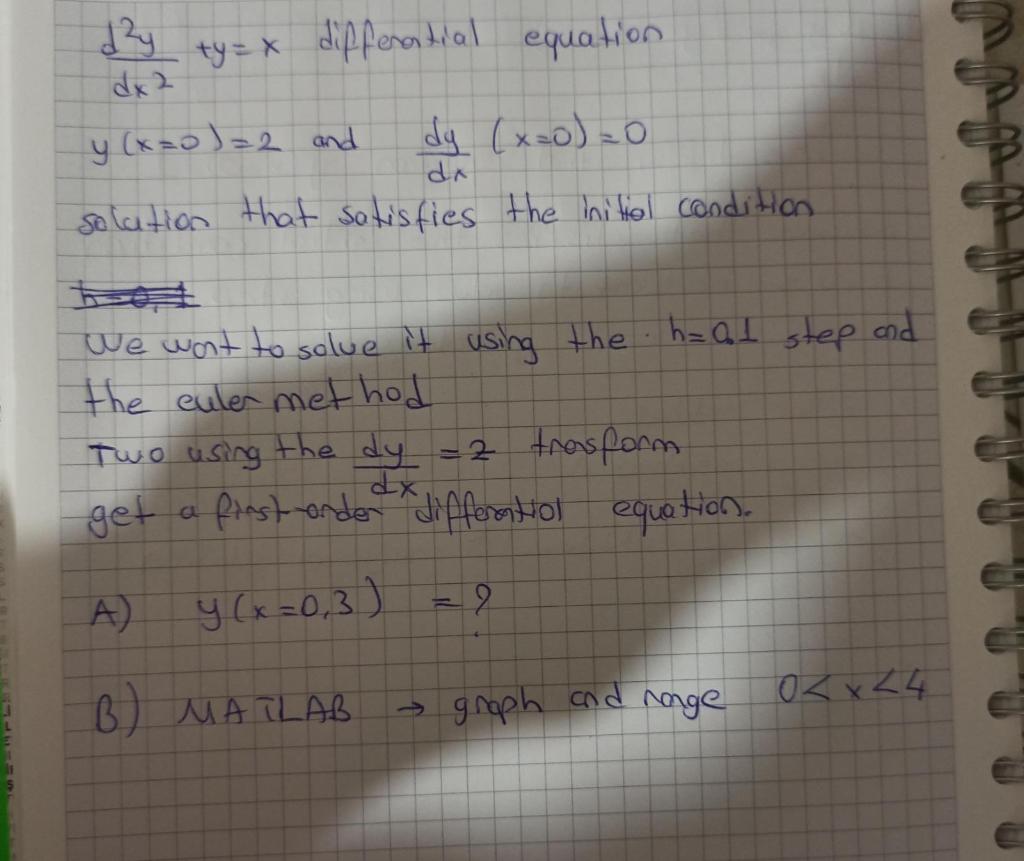 d²y/dx² +y = x differential equation
y(x=0)=2 and dy/dx (x=0)=0
solution that satisfies the initial condition
h=0,1
We want to solve it using the h=0.1 step and
the euler method
Two using the dy/dx = 2 transform
get a first-order differential equation.
A) y(x=0,3) = ?
B) MATLAB → graph and range 0<x<4